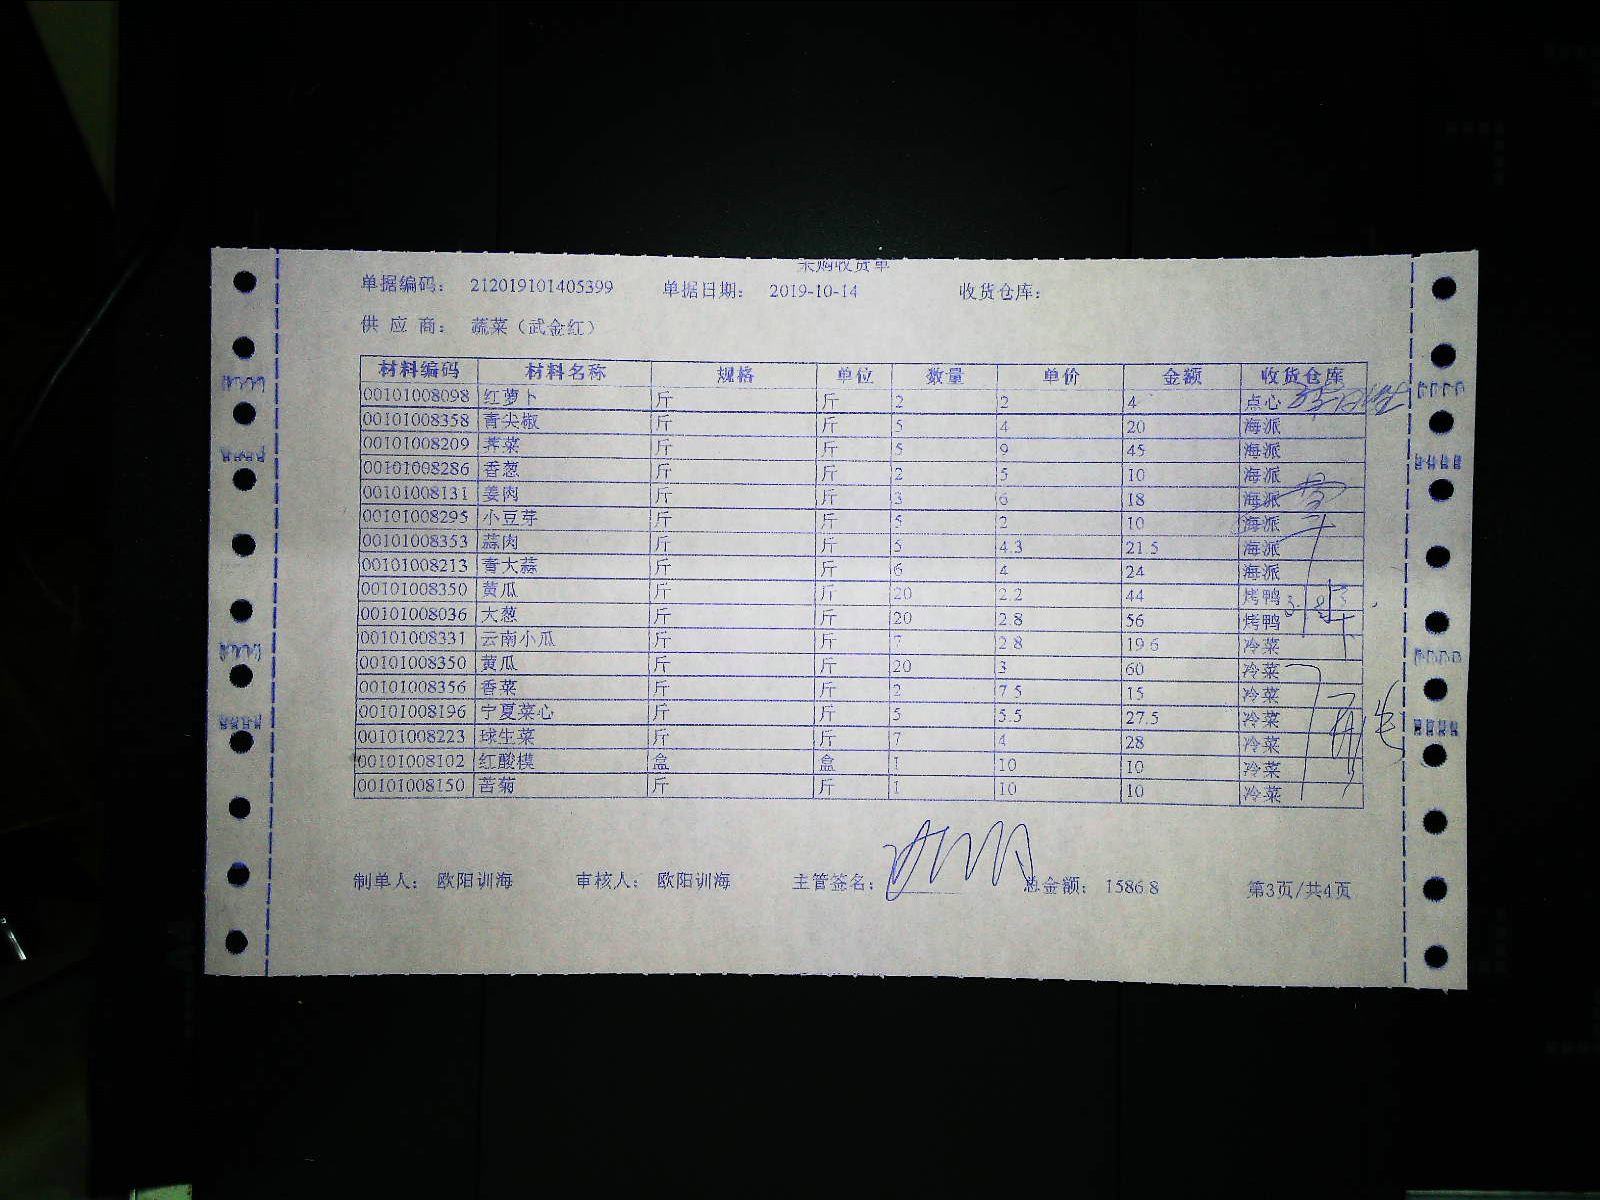 采购收货单
单据编码： 212019101405399 单据日期： 2019-10-14 收货仓库：
供 应 商： 蔬菜（武金红）
材料编码 材料名称 规格 单位 数量 单价 金额 收货仓库
00101008098 红萝卜 斤 斤 2 2 4 点心
00101008358 青尖椒 斤 斤 5 4 20 海派
00101008209 荠菜 斤 斤 5 9 45 海派
00101008286 香葱 斤 斤 2 5 10 海派
00101008131 姜肉 斤 斤 3 6 18 海派
00101008295 小豆芽 斤 斤 5 2 10 海派
00101008353 蒜肉 斤 斤 5 4.3 21.5 海派
00101008213 青大蒜 斤 斤 6 4 24 海派
00101008350 黄瓜 斤 斤 20 2.2 44 烤鸭
00101008036 大葱 斤 斤 20 2.8 56 烤鸭
00101008331 云南小瓜 斤 斤 7 2.8 19.6 冷菜
00101008350 黄瓜 斤 斤 20 3 60 冷菜
00101008356 香菜 斤 斤 2 7.5 15 冷菜
00101008196 宁夏菜心 斤 斤 5 5.5 27.5 冷菜
00101008223 球生菜 斤 斤 7 4 28 冷菜
00101008102 红酸模 盒 盒 1 10 10 冷菜
00101008150 苦菊 斤 斤 1 10 10 冷菜
制单人： 欧阳训海 审核人： 欧阳训海 主管签名： 总金额： 1586.8 第3页/共4页